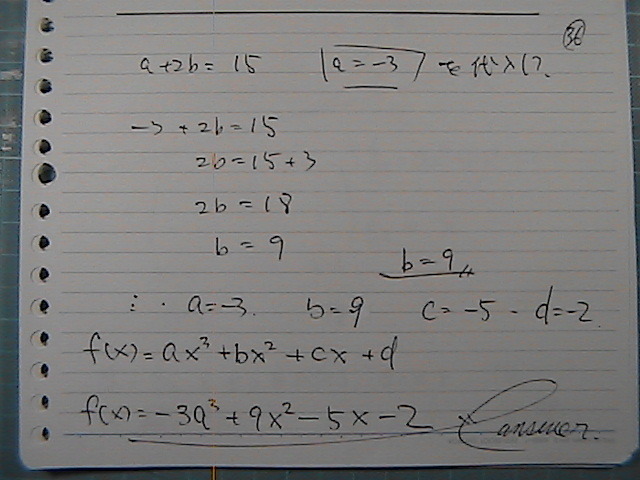 36
a+2b=15 a=-3 を代入して
-3+2b=15
2b=15+3
2b=18
b=9
b=9
∴ a=-3. b=9 c=-5 - d=-2
f(x)=ax³+bx²+cx+d
f(x)=-3a³+9x²-5x-2 answer.